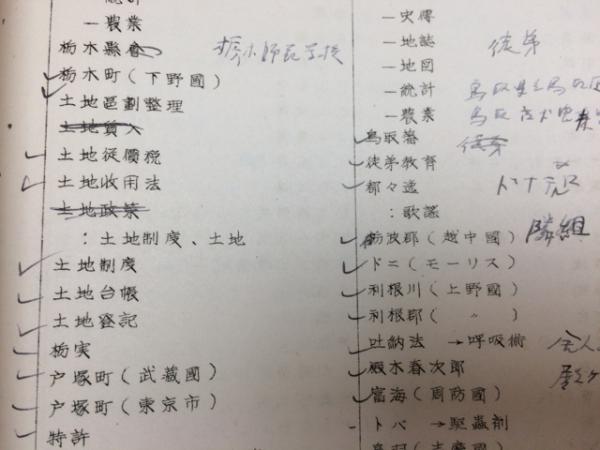 —農業
栃木縣會
栃木町(下野國)
土地區劃整理
土地買入
土地従價税
土地收用法
土地政策
:土地制度、土地
土地制度
土地台帳
土地登記
栃実
戸塚町(武蔵國)
戸塚町(東京市)
特許
—史傳
—地誌
徒弟
—地図
—統計
—農業
鳥取藩
徒弟教育
都々逸
:歌謡
砺波郡(越中國)
隣組
ドニ(モーリス)
利根川(上野國)
利根郡( 〃 )
吐納法 →呼吸術
殿木春次郎
富海(周防國)
トバ →駆蟲剤